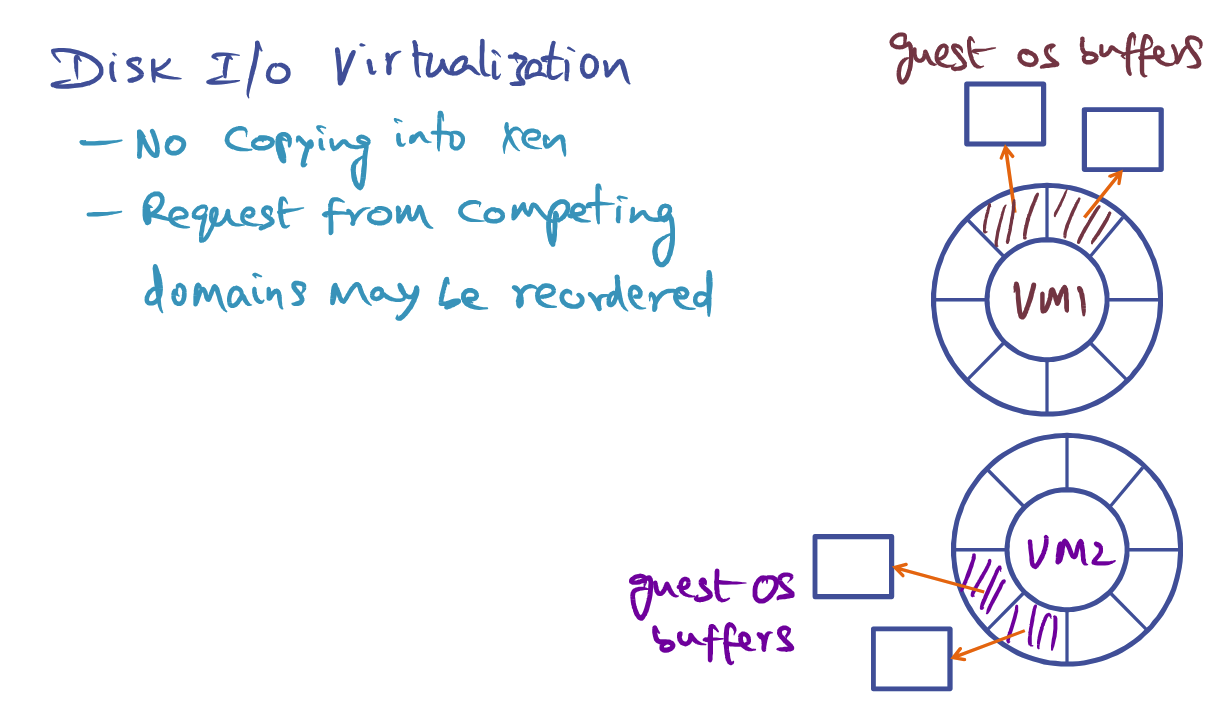 Disk I/o Virtualization
— No Copying into Xen
— Request from Competing
domains may be reordered
guest os buffers
VM1
VM2
guest OS
buffers